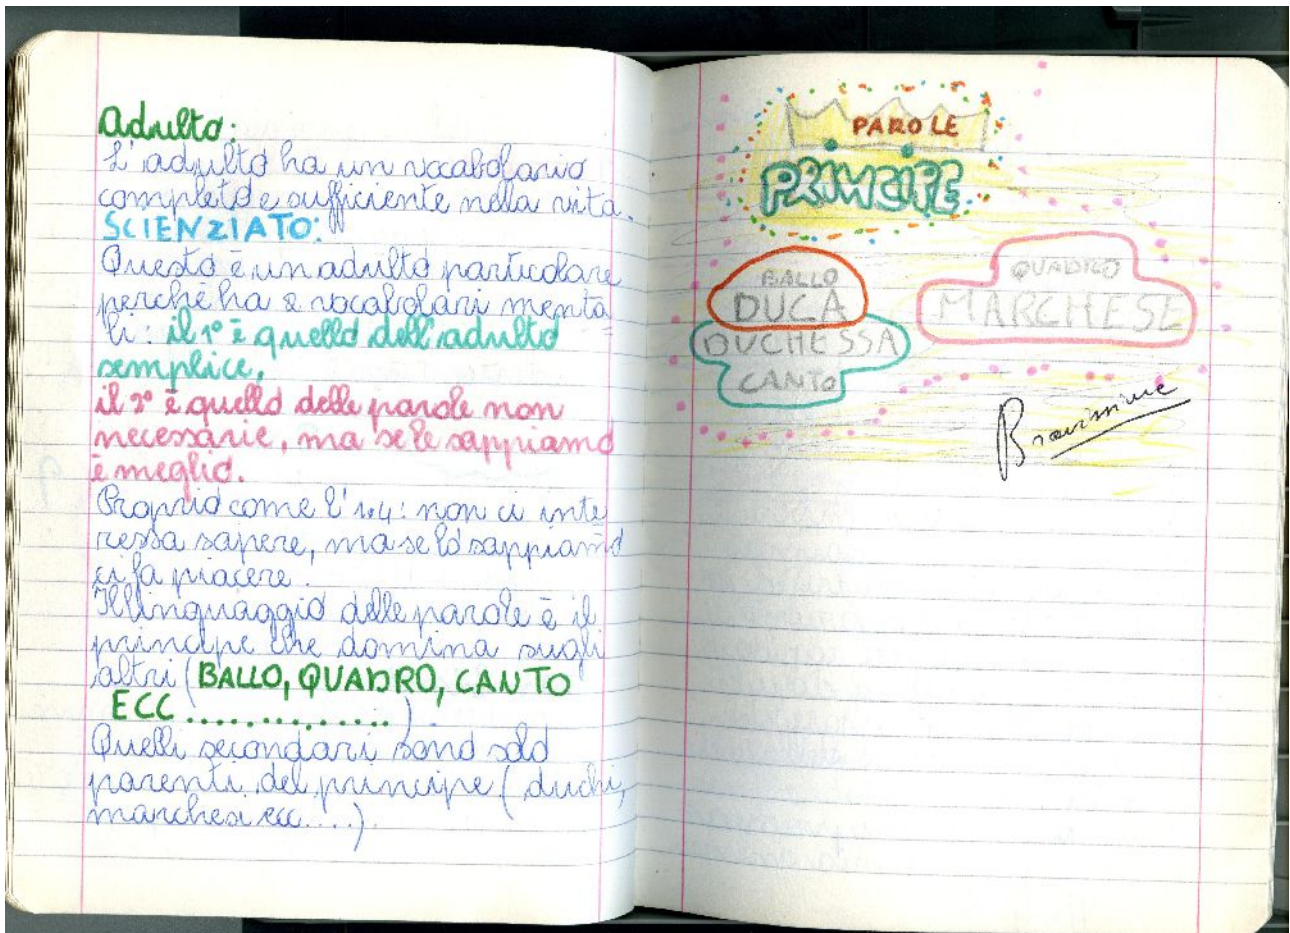 Adulto:
L'adulto ha un vocabolario
completo e sufficiente nella vita.
SCIENZIATO:
Questo è un adulto particolare
perché ha 2 vocabolari menta
li: il 1° è quello dell'adulto
semplice,
il 2° è quello delle parole non
necessarie, ma se le sappiamo
è meglio.
Proprio come l' 1×4: non ci inte
ressa sapere, ma se lo sappiamo
ci fa piacere.
Il linguaggio delle parole è il
principe che domina sugli
altri (BALLO, QUADRO, CANTO
ECC ..............)
Quelli secondari sono solo
parenti del principe (duchi,
marchesi ecc....)
PAROLE
PRINCIPE
BALLO
DUCA
DUCHESSA
CANTO
QUADRO
MARCHESE
Bravissime